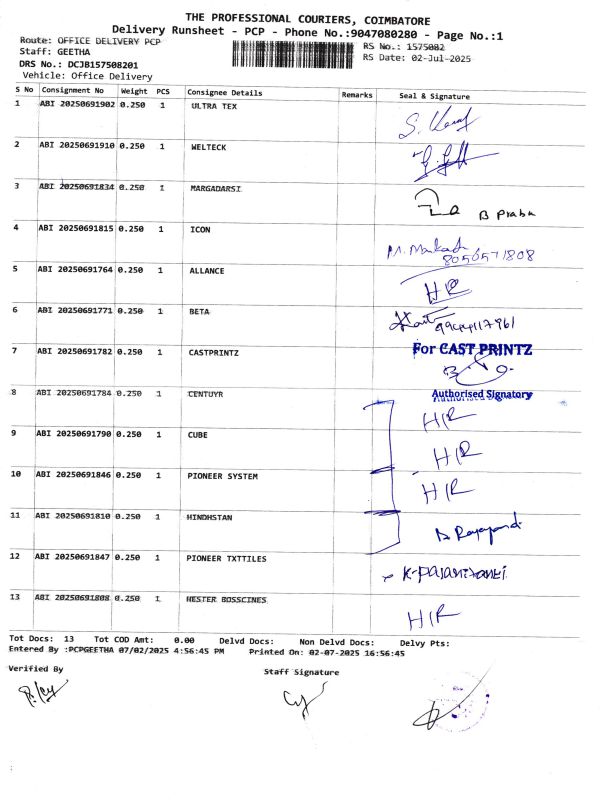 THE PROFESSIONAL COURIERS, COIMBATORE
Delivery Runsheet - PCP - Phone No.:9047080280 - Page No.:1
Route: OFFICE DELIVERY PCP RS No.: 1575082
Staff: GEETHA RS Date: 02-Jul-2025
DRS No.: DCJB157508201
Vehicle: Office Delivery
S No Consignment No Weight PCS Consignee Details Remarks Seal & Signature
1 ABI 20250691902 0.250 1 ULTRA TEX
2 ABI 20250691910 0.250 1 WELTECK
3 ABI 20250691834 0.250 1 MARGADARSI B Praba
4 ABI 20250691815 0.250 1 ICON
8056571808
5 ABI 20250691764 0.250 1 ALLANCE HR
6 ABI 20250691771 0.250 1 BETA
7 ABI 20250691782 0.250 1 CASTPRINTZ For CAST PRINTZ
Authorised Signatory
8 ABI 20250691784 0.250 1 CENTUYR HR
9 ABI 20250691790 0.250 1 CUBE HR
10 ABI 20250691846 0.250 1 PIONEER SYSTEM HR
11 ABI 20250691810 0.250 1 HINDHSTAN
12 ABI 20250691847 0.250 1 PIONEER TXTTILES
13 ABI 20250691808 0.250 1 HESTER BOSSCINES HR
Tot Docs: 13 Tot COD Amt: 0.00 Delvd Docs: Non Delvd Docs: Delvy Pts:
Entered By :PCPGEETHA 07/02/2025 4:56:45 PM Printed On: 02-07-2025 16:56:45
Verified By Staff Signature